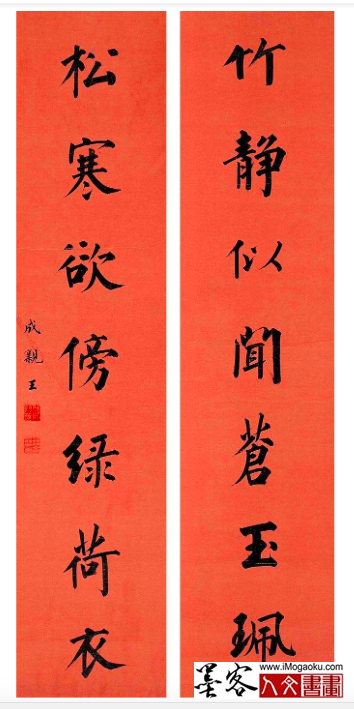 竹静似聞蒼玉珮
松寒欲傍緑荷衣
成親王
墨客
www.iMogaoku.com
人文書畫